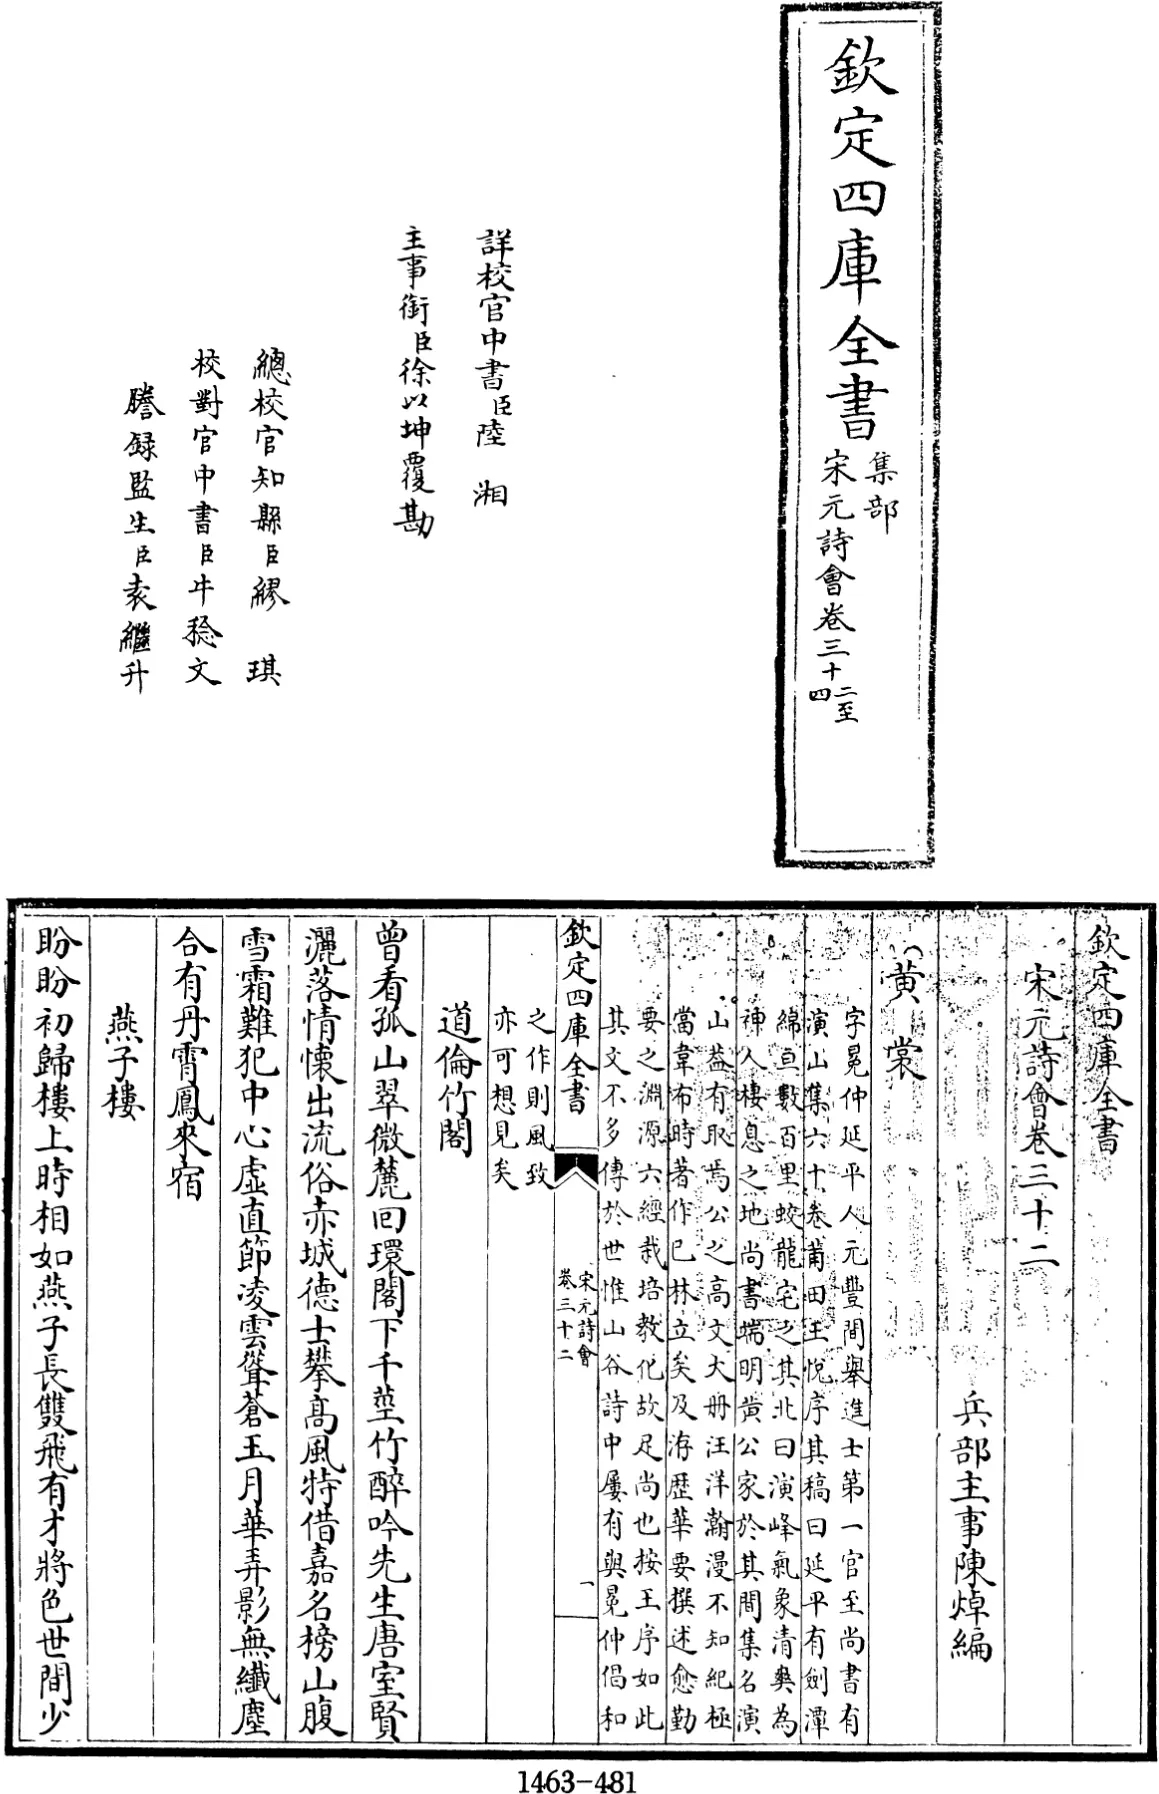 欽定四庫全書
集部
宋元詩會卷三十
二至
四
詳校官中書臣陸湘
主事銜臣徐以坤覆勘
總校官知縣臣繆琪
校對官中書臣牛稔文
謄録監生臣袁繼升
欽定四庫全書
宋元詩會卷三十二
兵部主事陳焯編
黃裳
字冕仲延平人元豐間舉進士第一官至尚書有
演山集六十卷莆田王悅序其稿曰延平有劍潭
綿亘數百里蛟龍宅之其北曰演峰氣象清奧為
神人棲息之地尚書端明黄公家於其間集名演
山葢有取焉公之高文大册汪洋瀚漫不知紀極
當韋布時著作已林立矣及洊歷華要撰述愈勤
要之淵源六經栽培教化故足尚也按王序如此
其文不多傳於世惟山谷詩中屢有與冕仲倡和
欽定四庫全書
宋元詩會
卷三十二
一
之作則風致
亦可想見矣
道倫竹閣
曾看孤山翠微麓回環閣下千莖竹醉吟先生唐室賢
灑落情懷出流俗赤城德士攀高風特借嘉名榜山腹
雪霜難犯中心虛直節凌雲聳蒼玉月華弄影無纖塵
合有丹霄鳳來宿
燕子樓
盼盼初歸樓上時相如燕子長雙飛有才將色世間少
1463-481